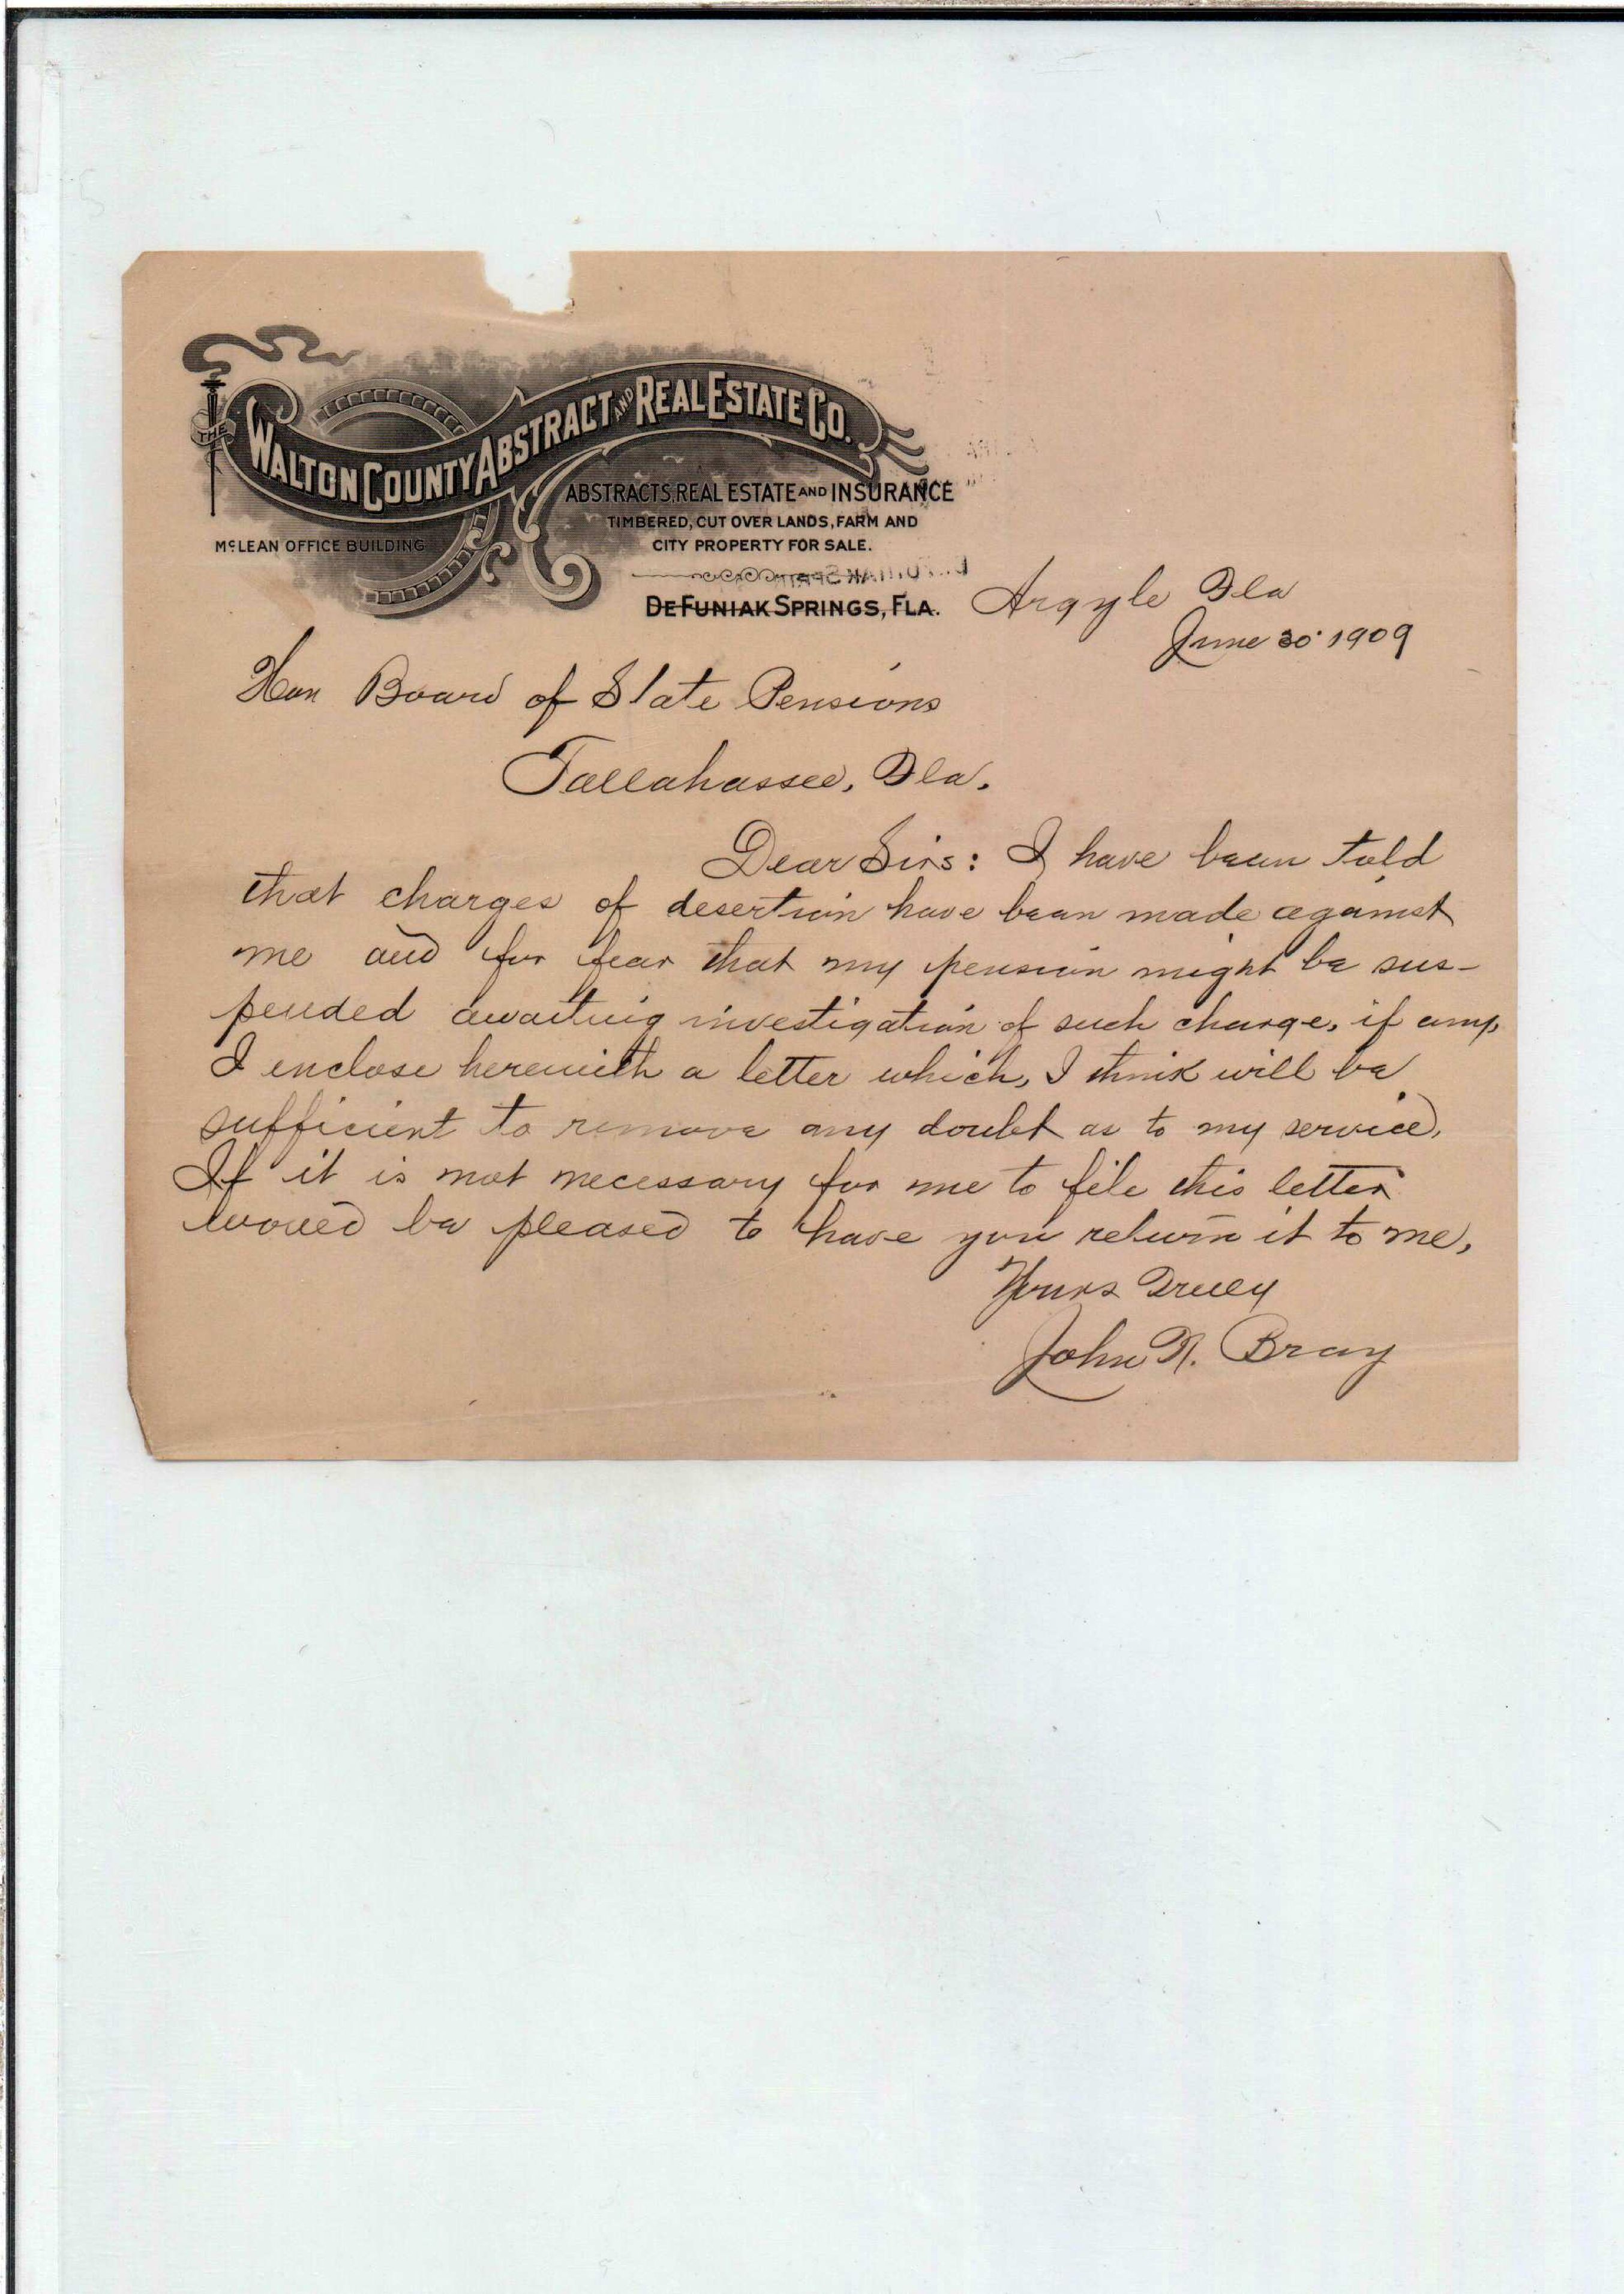 THE WALTON COUNTY ABSTRACT AND REAL ESTATE CO.
ABSTRACTS, REAL ESTATE AND INSURANCE
TIMBERED, CUT OVER LANDS, FARM AND
McLEAN OFFICE BUILDING CITY PROPERTY FOR SALE.
DEFUNIAK SPRINGS, FLA. Argyle Fla
June 30 1909
Hon Board of State Pensions
Tallahassee, Fla.
Dear Sirs: I have been told
that charges of desertion have been made against
me and for fear that my pension might be sus-
pended awaiting investigation of such charge, if any,
I enclose herewith a letter which, I think will be
sufficient to remove any doubt as to my service.
If it is not necessary for me to file this letter
would be pleased to have you return it to me,
Yours Truly
John R. Bray